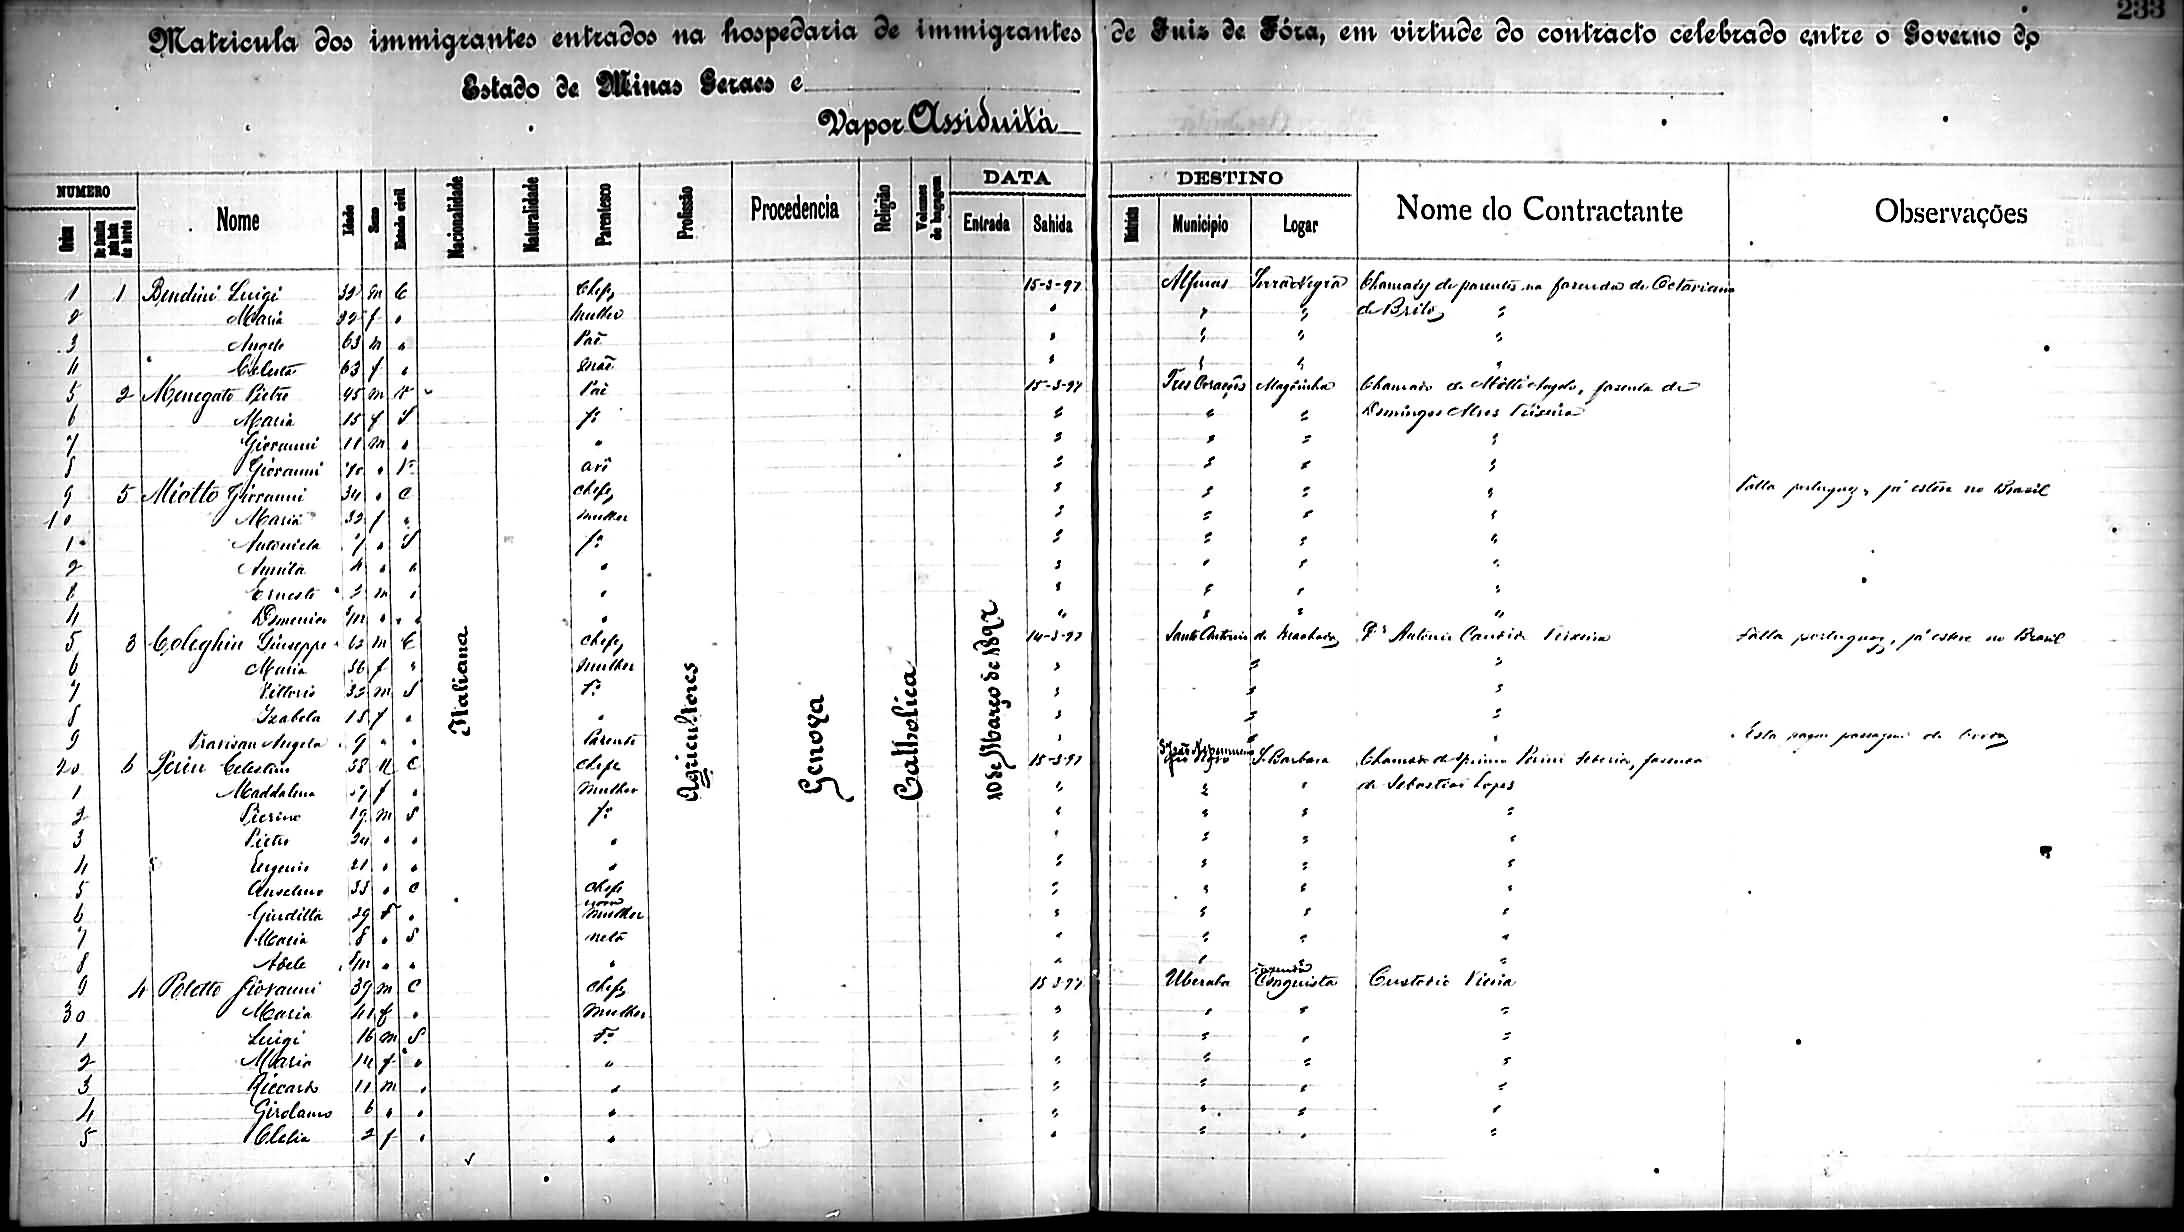 233
Matricula dos immigrantes entrados na hospedaria de immigrantes de Juiz de Fóra, em virtude do contracto celebrado entre o Governo do
Estado de Minas Geraes e
Vapor Assiduità
NUMERO Nome Idade Sexo Estado civil Nacionalidade Naturalidade Parentesco Profissão Procedencia Religião Volumes de bagagem DATA Entrada Sahida DESTINO Municipio Logar Nome do Contractante Observações
Italiana
Agricultores
Genova
Catholica
10 de Março de 1897
1 1 Bendini Luigi m C Chefe 15-3-97 Alfenas Chamado de parentes na fazenda de Octaviano
2 Maria f " Mulher " " " de Brito "
3 Angelo 63 m " Pae " " " "
4 63 f " Mãe " " " "
5 2 Menegato Pietro 45 m V Pae 15-3-97 Tres Corações fazenda de
6 Maria 15 f S fª " " " Domingos Alves Teixeira
7 Giovanni 11 m " " " " " "
8 Giovanni 70 " Vº avô " " " "
9 5 Miotto Giovanni 34 " C Chefe " " " " Falla portuguez, já esteve no Brasil
10 Maria 32 f " Mulher " " " "
1 Antonieta 7 " S fª " " " "
2 4 " " " " " " "
3 Ernesto 2 m " " " " " "
4 Domenico " " " " " " "
5 3 Coleghin Giuseppe m C Chefe 14-3-97 Santo Antonio do Machado Dr Antonio Candido Teixeira Falla portuguez, já esteve no Brasil
6 Maria 36 f " Mulher " " "
7 Vittorio m S fº " " "
8 Izabela 15 f " " " " "
9 Travisan Angela 9 " " Parente " " " Esta pagou passagem de
20 6 Perin Celestino 58 M C Chefe 15-3-97 S. João Nepomuceno S. Barbara Chamado de fazenda
1 Maddalena f " Mulher " " " de Sebastião Lopes
2 Pierino 19 m S fº " " " "
3 Pietro 24 " " " " " " "
4 Eugenio 21 " " " " " " "
5 Anselmo 33 " C Chefe " " " "
6 Giuditta 29 f " nora Mulher " " " "
7 Maria 8 " S neta " " " "
8 Adele " " " " " " "
9 4 Poletto Giovanni 39 m C Chefe 15-3-97 Uberaba fazenda Conquista Custodio Vieira
30 Maria 41 f " Mulher " " " "
1 Luigi 16 m S fº " " " "
2 Maria 14 f " " " " " "
3 Riccardo 11 m " " " " " "
4 Girolamo 6 " " " " " " "
5 Clelia 2 f " " " " " "